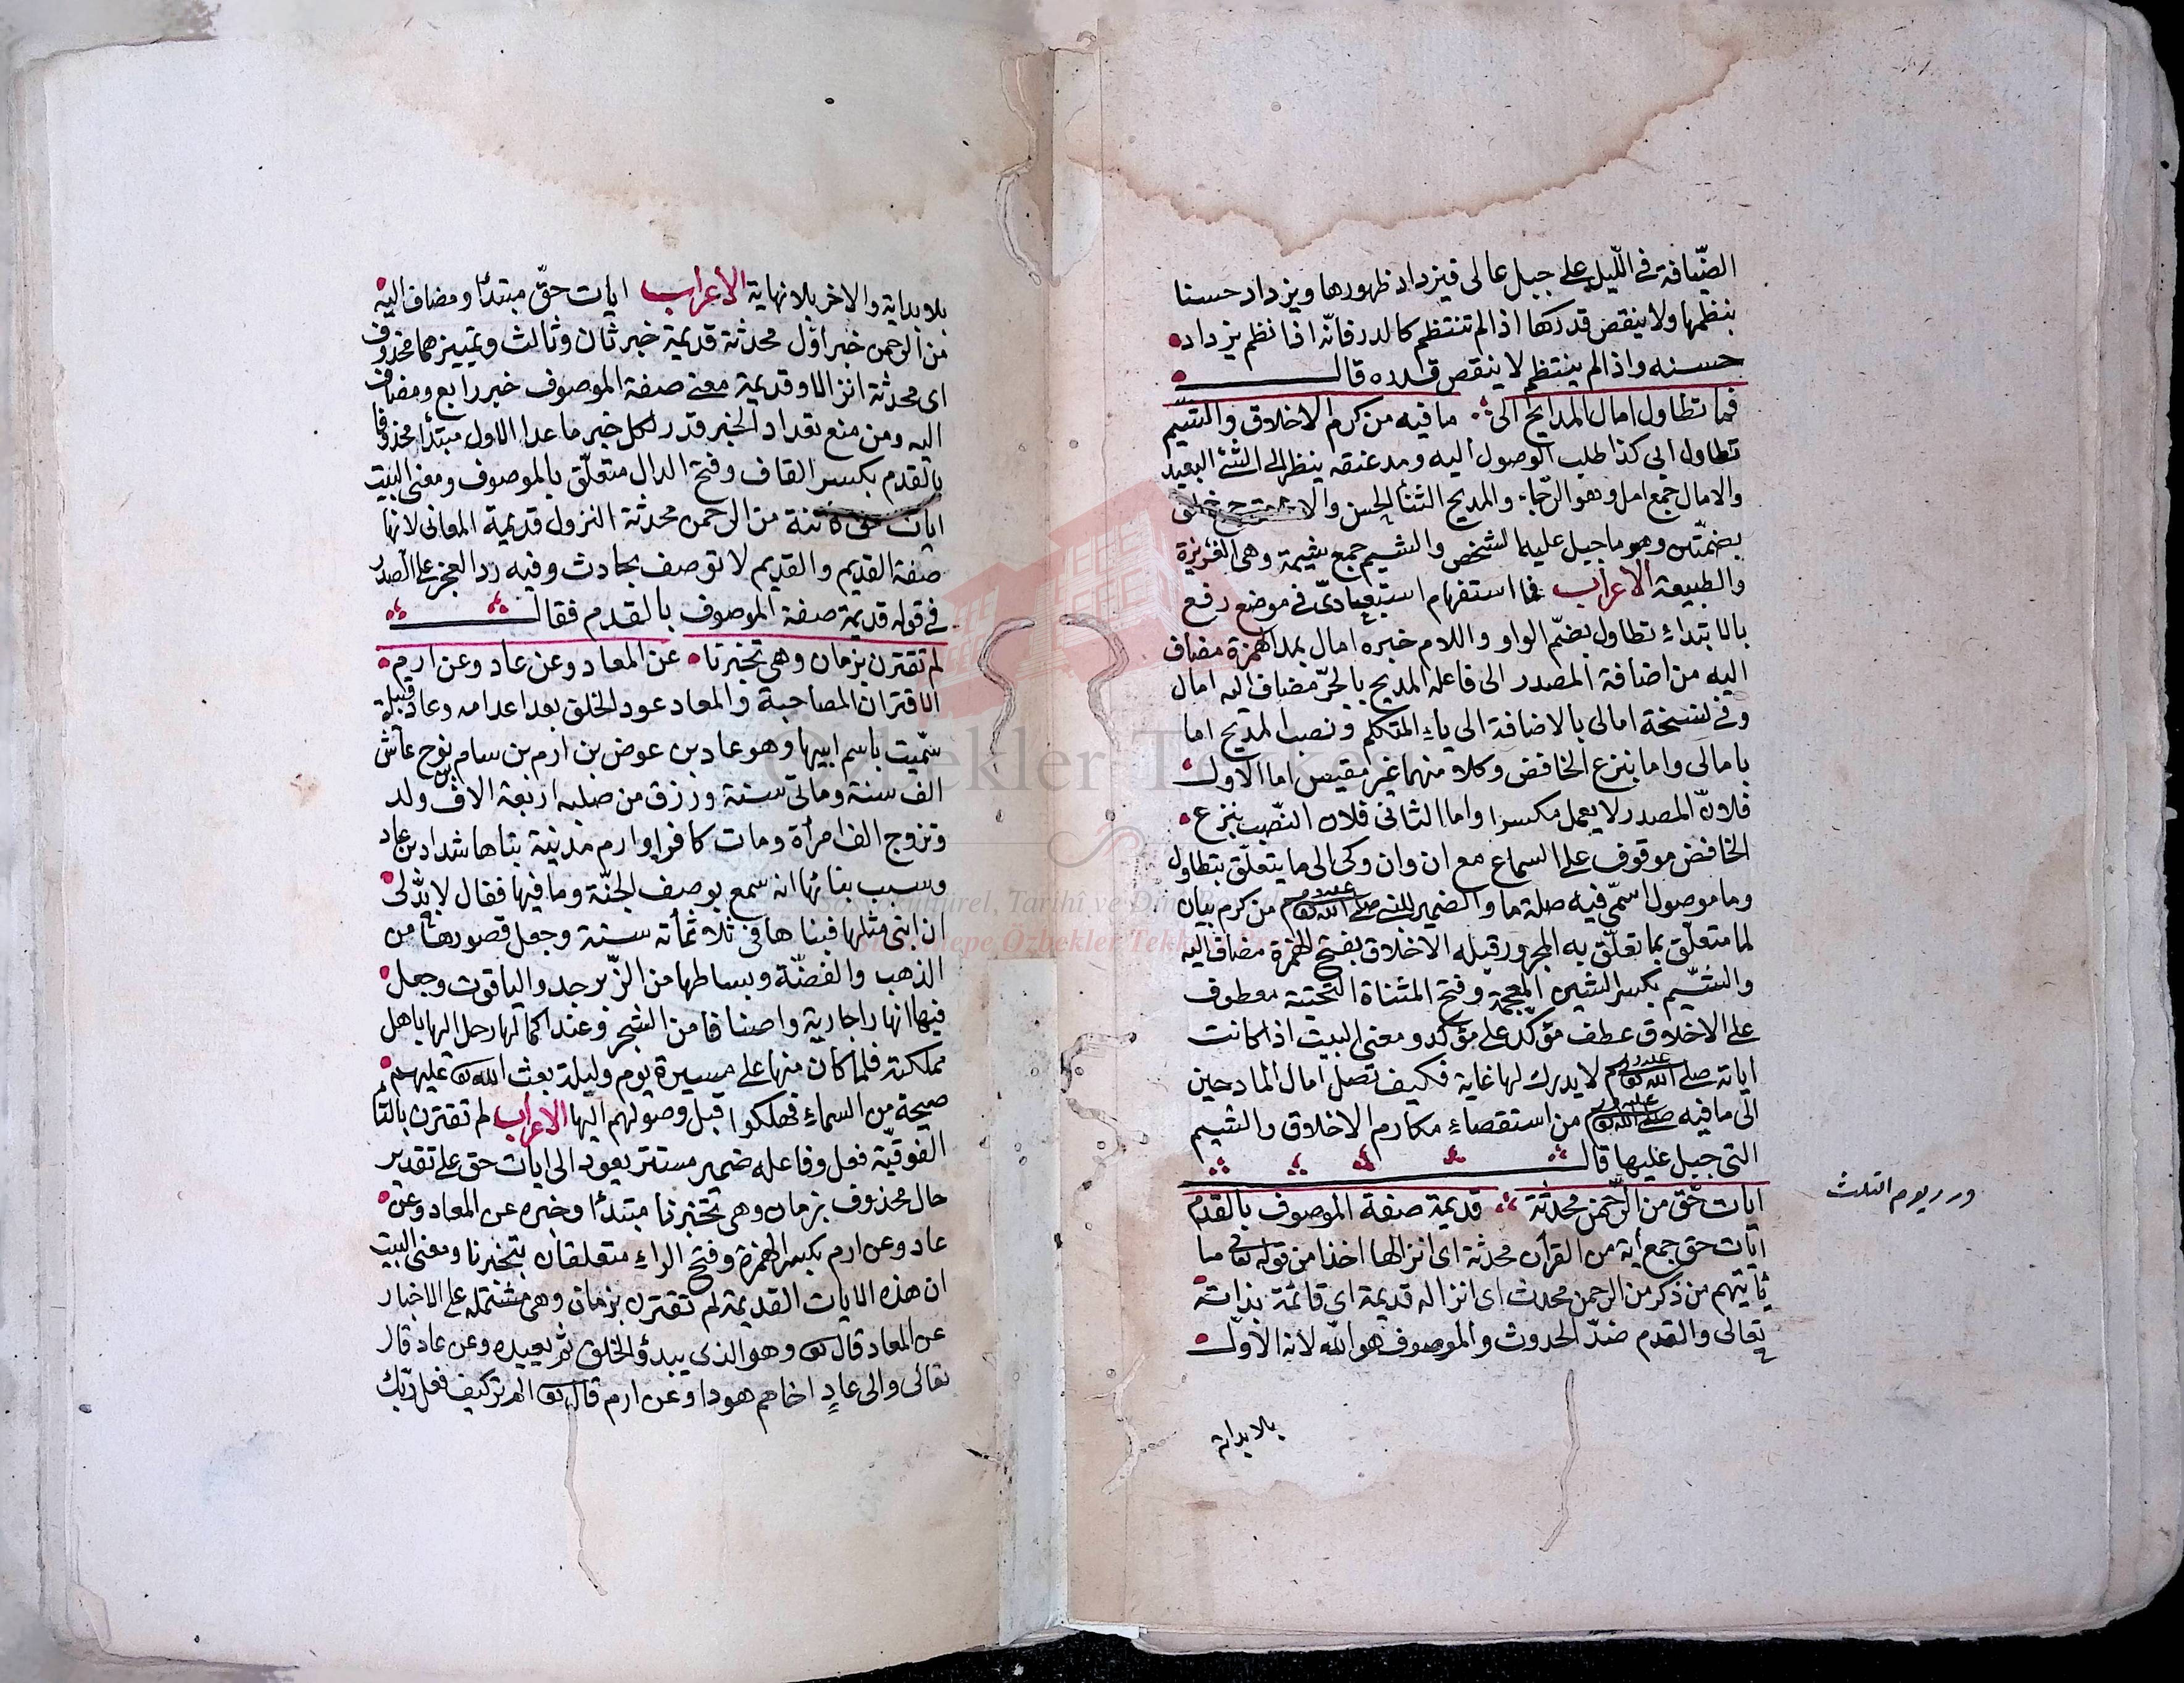 الضّيافة في اللّيل على جبل عالى فيزداد ظهورها ويزداد حسنا
بنظمها ولا ينقص قدرها اذا لم تنتظم كالدر فانّه اذا نظم يزداد
حسنه واذا لم ينتظم لا ينقص قدره قال
فما تطاول امال المديح الى ما فيه من كرم الاخلاق والشيم
تطاول الى كذا طلب الوصول اليه ومد عنقه ينظر الى الشئ البعيد
والامال جمع امل وهو الرّجاء والمديح الثنأ الحسن والاخلاق جمع خلق
بضمتين وهو ما جبل عليه الشخص والشيم جمع شيمة وهى الغريزة
والطبيعة الاعراب فما استفهام استبعادىّ في موضع رفع
بالابتداء تطاول بضمّ الواو واللام خبره امال بمد الهمزة مضاف
اليه من اضافة المصدر الى فاعله المديح بالجرّ مضاف اليه امال
وفي نسخة امالى بالاضافة الى ياء المتكلم ونصب المديح اما
بامالى واما بنزع الخافض وكلا منهما غير مقيس اما الاول
فلانّ المصدر لا يعمل مكسرا واما الثانى فلان النّصب بنزع
الخافض موقوف على السماع مع ان وان وكى الى ما يتعلّق بتطاول
وما موصول اسمّى فيه صلة ما والضمير للنبى صلى الله عليه وسلم من كرم بيان
لما متعلّق بما تعلّق به المجرور قبله الاخلاق بفتح الهمزة مضاف اليه
والشّيم بكسر الشين المعجمة وفتح المثناة التحتية معطوف
على الاخلاق عطف مؤكد على مؤكد ومعنى البيت اذا كانت
اياته صلى الله عليه وسلم لا يدرك لها غاية فكيف تصل امال المادحين
الى ما فيه صلى الله عليه وسلم من استقصاء مكارم الاخلاق والشيم
التى جبل عليها قال
ايات حّق من الرّحمن محدثة قديمة صفة الموصوف بالقدم
ايات حق جمع اية من القرأن محدثة اى انزالها اخذا من قوله تعالى ما
يأتيهم من ذكر من الرحمن محدث اى انزاله قديمة اى قائمة بذاته
تعالى والقدم ضدّ الحدوث والموصوف هو اللّه لانه الاوّل
ورد يوم الثلث
بلا بداية
بلا بداية والاخر بلا نهاية الأعراب ايات حقّ مبتدأ ومضاف اليه
من الرحمن خبر اوّل محدثة قديمة خبر ثان وثالث وتمييزهما محذوف
اى محدثة انزالا وقديمة معنى صفة الموصوف خبر رابع ومضاف
اليه ومن منع تعداد الخبر قدر لكل خبر ما عدا الاول مبتدأ محذوفا
بالقدم بكسر القاف وفتح الدال متعلّق بالموصوف ومعنى البيت
ايات حق كائنة من الرحمن محدثة النزول قديمة المعانى لانها
صفة القديم والقديم لا توصف بحادث وفيه رد العجز على الصدر
في قوله قديمة صفة الموصوف بالقدم فقال
لم تقترن بزمان وهى تخبرنا عن المعاد وعن عاد وعن ارم
الاقتران المصاحبة والمعاد عود الخلق بعد اعدامه وعاد قبيلة
سمّيت باسم ابيها وهو عاد بن عوض بن ارم بن سام بن نوح عاش
الف سنة ومأتى سنة ورزق من صلبه اربعة الاف ولد
وتزوج الف امرأة ومات كافرا وارم مدينة بناها شداد بن عاد
وسبب بنائها انه سمع بوصف الجنّة وما فيها فقال لا بدّ لى
ان ابنى مثلها فبناها في ثلاثمائة سنة وجعل قصورها من
الذهب والفضّة وبساطها من الزّبرجد والياقوت وجعل
فيها انهارا جارية واصنافا من الشجر وعند اكمالها رحل اليها باهل
مملكته فلما كان منها على مسيرة يوم وليلة بعث الله تعالى عليهم
صيحة من السماء فهلكوا قبل وصولهم اليها الاعراب لم تقترن بالتأ
الفوقيّة فعل وفاعله ضمير مستتر يعود الى ايات حق على تقدير
حال محذوف بزمان وهى تخبرنا مبتدأ وخبره عن المعاد وعن
عاد وعن ارم بكسر الهمزة وفتح الراء متعلقان بتخبرنا ومعنى البيت
ان هذه الايات القديمة لم تقترن بزمان وهى مشتملة على الاخبار
عن المعاد قال تعالى وهو الذى يبدؤ الخلق ثم يعيده وعن عاد قال
تعالى والى عادٍ اخاهم هودا وعن ارم قال تعالى الم تر كيف فعل ربّك
Özbekler Tekkesi